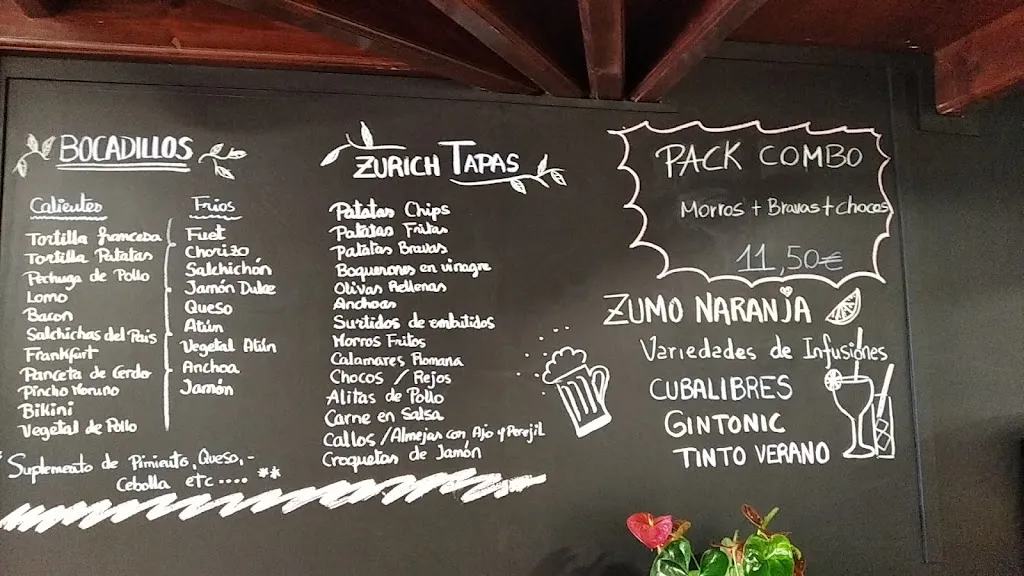 BOCADILLOS
Calientes
Tortilla francesa
Tortilla Patatas
Pechuga de Pollo
Lomo
Bacon
Salchichas del Pais
Frankfurt
Panceta de Cerdo
Pincho Moruno
Bikini
Vegetal de Pollo
Frios
Fuet
Chorizo
Salchichón
Jamón Dulce
Queso
Atún
Vegetal Atún
Anchoa
Jamón
* Suplemento de Pimiento, Queso, -
Cebolla etc .... **
ZURICH TAPAS
Patatas Chips
Patatas Fritas
Patatas Bravas
Boquerones en vinagre
Olivas Rellenas
Anchoas
Surtidos de embitidos
Morros Fritos
Calamares Romana
Chocos / Rejos
Alitas de Pollo
Carne en Salsa
Callos /Almejas con Ajo y Perejil
Croquetas de Jamón
PACK COMBO
Morros + Bravas + chocos
11,50€
ZUMO NARANJA
Variedades de Infusiones
CUBALIBRES
GINTONIC
TINTO VERANO